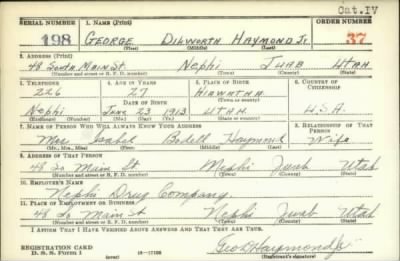 Cat.IV
SERIAL NUMBER 1. NAME (Print) ORDER NUMBER
198 GEORGE DILWORTH HAYMOND Jr 37
(First) (Middle) (Last)
2. ADDRESS (Print)
48 South Main St. Nephi JUAB UTAH
(Number and street or R. F. D. number) (Town) (County) (State)
3. TELEPHONE 4. AGE IN YEARS 5. PLACE OF BIRTH 6. COUNTRY OF CITIZENSHIP
226 27 HIAWATHA
DATE OF BIRTH (Town or county)
Nephi June 23 1913 UTAH U.S.A.
(Exchange) (Number) (Mo.) (Day) (Yr.) (State or country)
7. NAME OF PERSON WHO WILL ALWAYS KNOW YOUR ADDRESS 8. RELATIONSHIP OF THAT PERSON
Mrs Isabel Bodell Haymond Wife
(Mr., Mrs., Miss) (First) (Middle) (Last)
9. ADDRESS OF THAT PERSON
48 So Main St Nephi Juab Utah
(Number and street or R. F. D. number) (Town) (County) (State)
10. EMPLOYER'S NAME
Nephi Drug Company
11. PLACE OF EMPLOYMENT OR BUSINESS
48 So Main St Nephi Juab Utah
(Number and street or R. F. D. number) (Town) (County) (State)
I AFFIRM THAT I HAVE VERIFIED ABOVE ANSWERS AND THAT THEY ARE TRUE.
REGISTRATION CARD
D. S. S. FORM 1 (over) 16—17105 Geo D Haymond Jr.
(Registrant's signature)